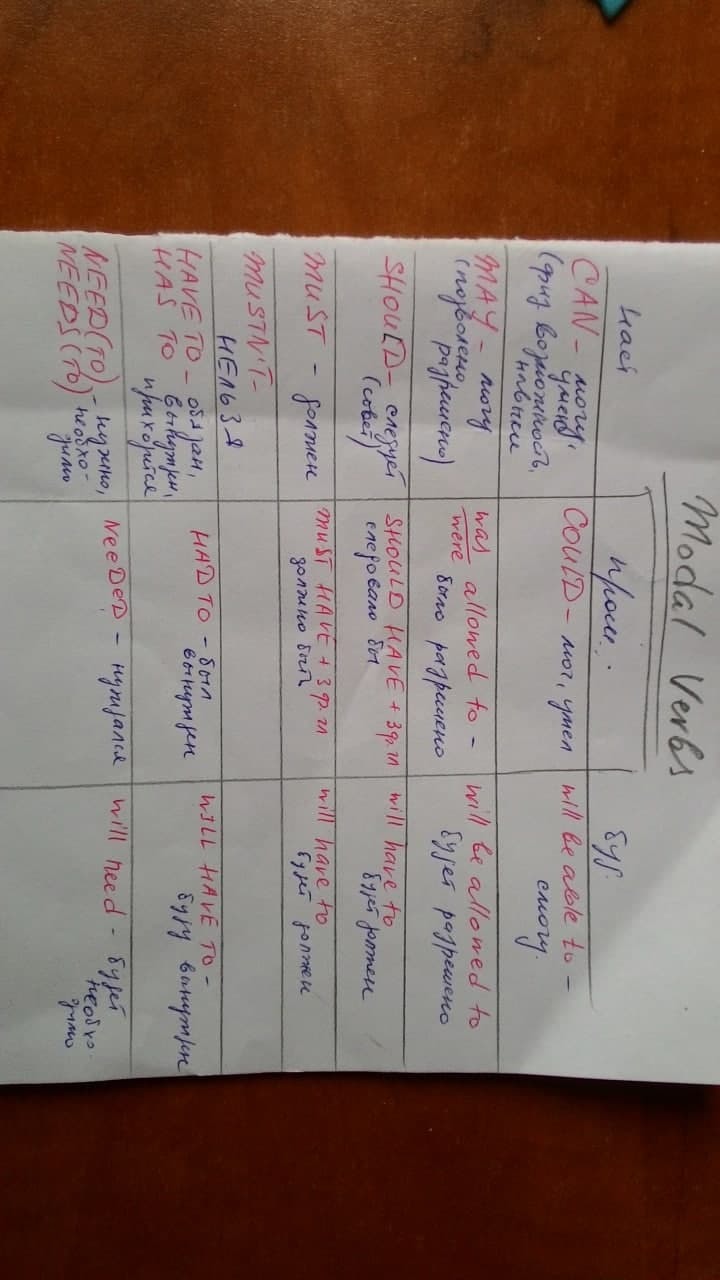 Modal Verbs
Наст
прош.
буд.
CAN - могу,
умею
(физ возможность,
навыки
COULD - мог, умел
will be able to -
смогу.
MAY - могу
(позволено
разрешено)
was allowed to -
were
было разрешено
will be allowed to
будет разрешено
SHOULD - следует
(совет)
SHOULD HAVE + 3 ф. гл
следовало бы
will have to
будет должен
MUST - должен
MUST HAVE + 3 ф. гл
должно быть
will have to
будет должен
MUSTN'T -
НЕЛЬЗЯ
HAVE TO - обязан,
HAS TO
вынужден,
приходится
HAD TO - был
вынужден
WILL HAVE TO -
буду вынужден
NEED (TO) - нужно,
NEEDS (TO)
необхо-
димо
NeeDeD - нуждался
will need - будет
необхо-
димо